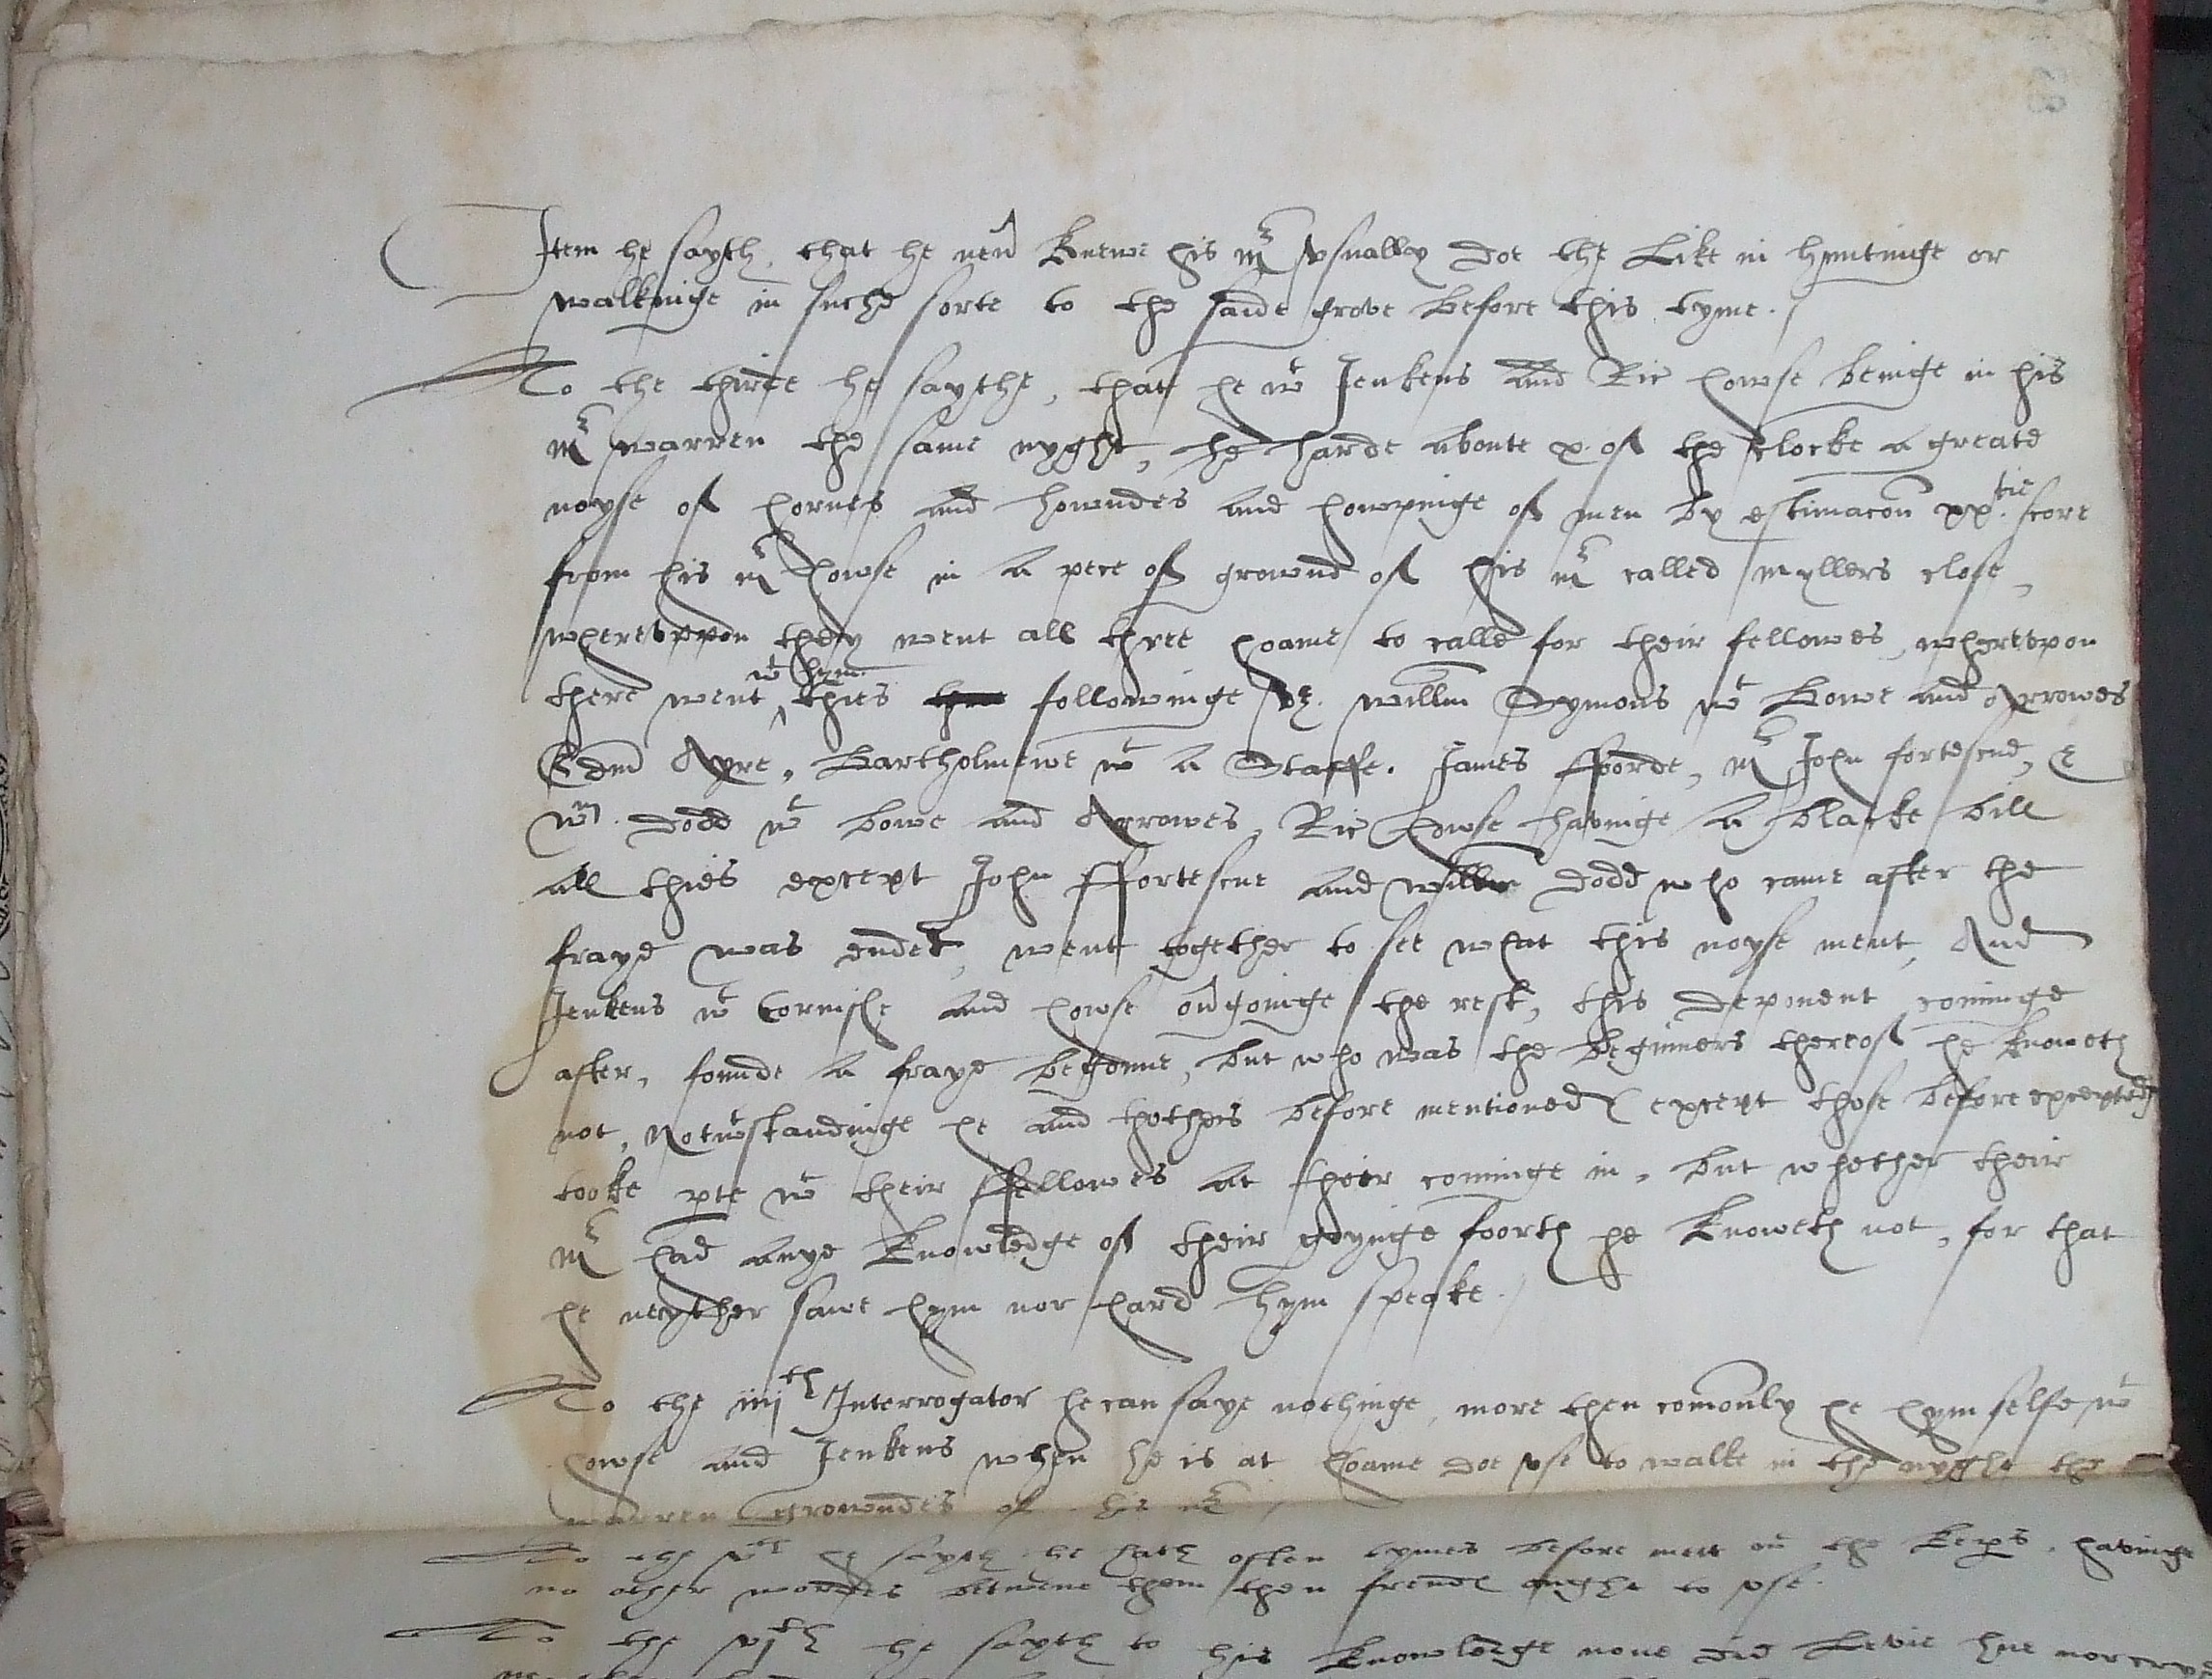 Item he sayth, that he neũ knewe his mr vsually doe the like in hunting or
walkinge in suche sorte to the saide grove before this tyme.
To the thirde he saythe, that he wt Jenkens and Ric howse beinge in his
mr warren the same nyght, he harde aboute x. of the clocke a greate
noyse of hornes and howndes and howpinge of men by estimacon xxtie score
from his mr howse in a pece of grownd of his mr called myllers close,
wherevppon they went all three hoame to calle for their fellowes, wherevpon
there went ^ wt hym thies followinge vz. Willm Symons wt bowe and Arrowes
Edm Ayre, Bartholmewe wt a Staffe. James fforde, mr John fortescue, &
wm. Dodd wt bowe and Arrowes, Ric howse havinge a blacke bill
all thies except John ffortescue and willm Dodd who came after the
fraye was ended, went together to see what this noyse ment, And
Jenkens wt Cornishe and howse oũgoinge the rest, this deponent cominge
after, founde a fraye begonne, but who was the beginners thereof he knoweth
not, Notwtstandinge he and thothers before mentioned (except those before excepted)
tooke pte wt their ffellowes at their cominge in, but whether their
mr had anye knowledge of their goynge foorth he knoweth not, for that
he neyther sawe hym nor hard hym speake.
To the iiijth Interrogator he can saye nothinge, more then comonly he hymselfe wt
howse and Jenkens when he is at hoame doe vse to walke in the nyght the
warren growndes of his mr
To the vth he sayth he hath often tymes before mett wt the kepers, havinge
no other wordes betwene them then frendes ought to vse.
To the vjth he sayth to his knowledge none did levie hue nor crye